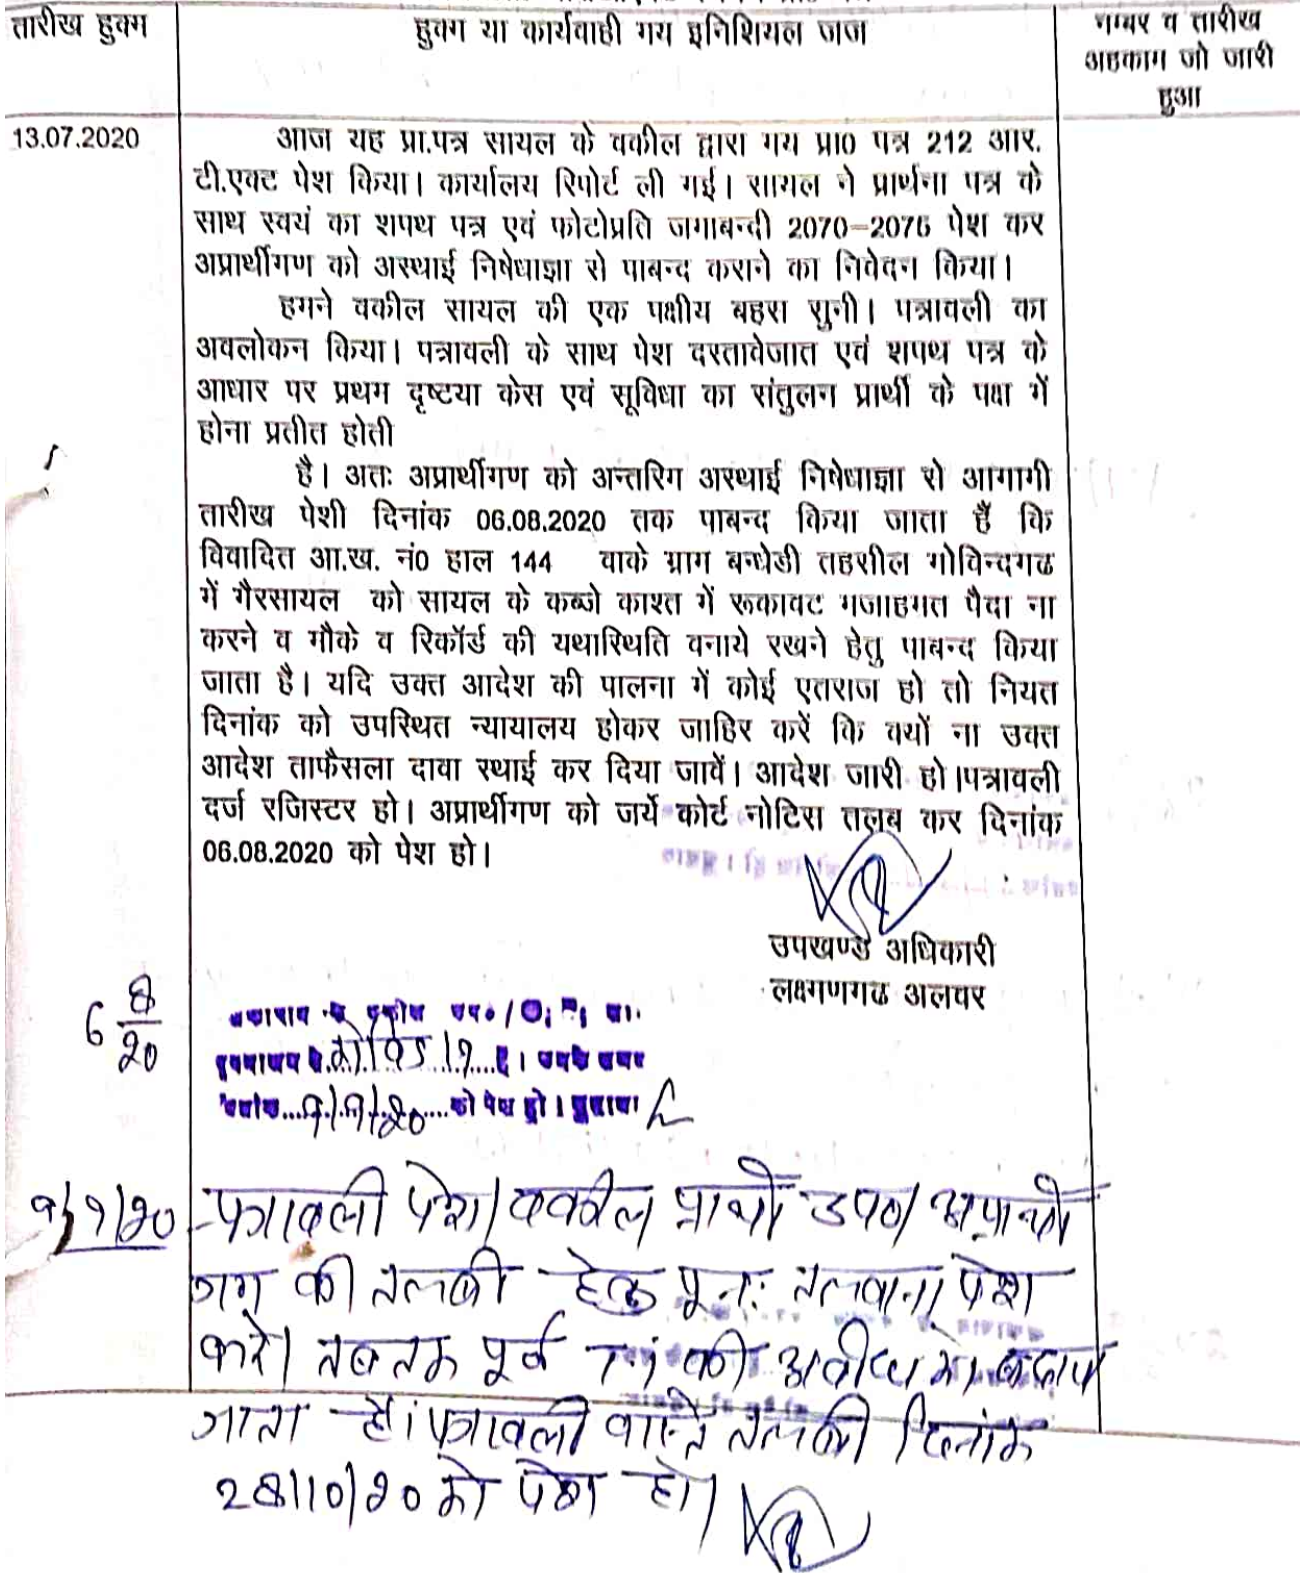 तारीख हुक्म
हुक्म या कार्यवाही मय इनिशियल जज
नम्बर व तारीख
अहकाम जो जारी
हुआ
13.07.2020
आज यह प्रा.पत्र सायल के वकील द्वारा मय प्रा0 पत्र 212 आर.
टी.एक्ट पेश किया। कार्यालय रिपोर्ट ली गई। सायल ने प्रार्थना पत्र के
साथ स्वयं का शपथ पत्र एवं फोटोप्रति जमाबन्दी 2070–2076 पेश कर
अप्रार्थीगण को अस्थाई निषेधाज्ञा से पाबन्द कराने का निवेदन किया।
हमने वकील सायल की एक पक्षीय बहस सुनी। पत्रावली का
अवलोकन किया। पत्रावली के साथ पेश दस्तावेजात एवं शपथ पत्र के
आधार पर प्रथम दृष्टया केस एवं सूविधा का संतुलन प्रार्थी के पक्ष में
होना प्रतीत होती
है। अतः अप्रार्थीगण को अन्तरिम अस्थाई निषेधाज्ञा से आगामी
तारीख पेशी दिनांक 06.08.2020 तक पाबन्द किया जाता हैं कि
विवादित आ.ख. नं0 हाल 144 वाके ग्राम बन्धेडी तहसील गोविन्दगढ
में गैरसायल को सायल के कब्जे काश्त में रूकावट मजाहमत पैदा ना
करने व मौके व रिकॉर्ड की यथास्थिति बनाये रखने हेतु पाबन्द किया
जाता है। यदि उक्त आदेश की पालना में कोई एतराज हो तो नियत
दिनांक को उपस्थित न्यायालय होकर जाहिर करें कि क्यों ना उक्त
आदेश ताफैसला दावा स्थाई कर दिया जावें। आदेश जारी हो।पत्रावली
दर्ज रजिस्टर हो। अप्रार्थीगण को जर्ये कोर्ट नोटिस तलब कर दिनांक
06.08.2020 को पेश हो।
उपखण्ड अधिकारी
लक्ष्मणगढ अलवर
6 8/20
9/9/20 को पेश हो।
9/9/20 पत्रावली पेश। वकील प्रार्थी उप0। अप्रार्थी
गण की तलबी हेतु पुनः तलवाना पेश
करे। तब तक पूर्व T.I की अवधि को बढाया
जाता है। पत्रावली वास्ते तलबी दिनांक
28/10/20 को पेश हो।